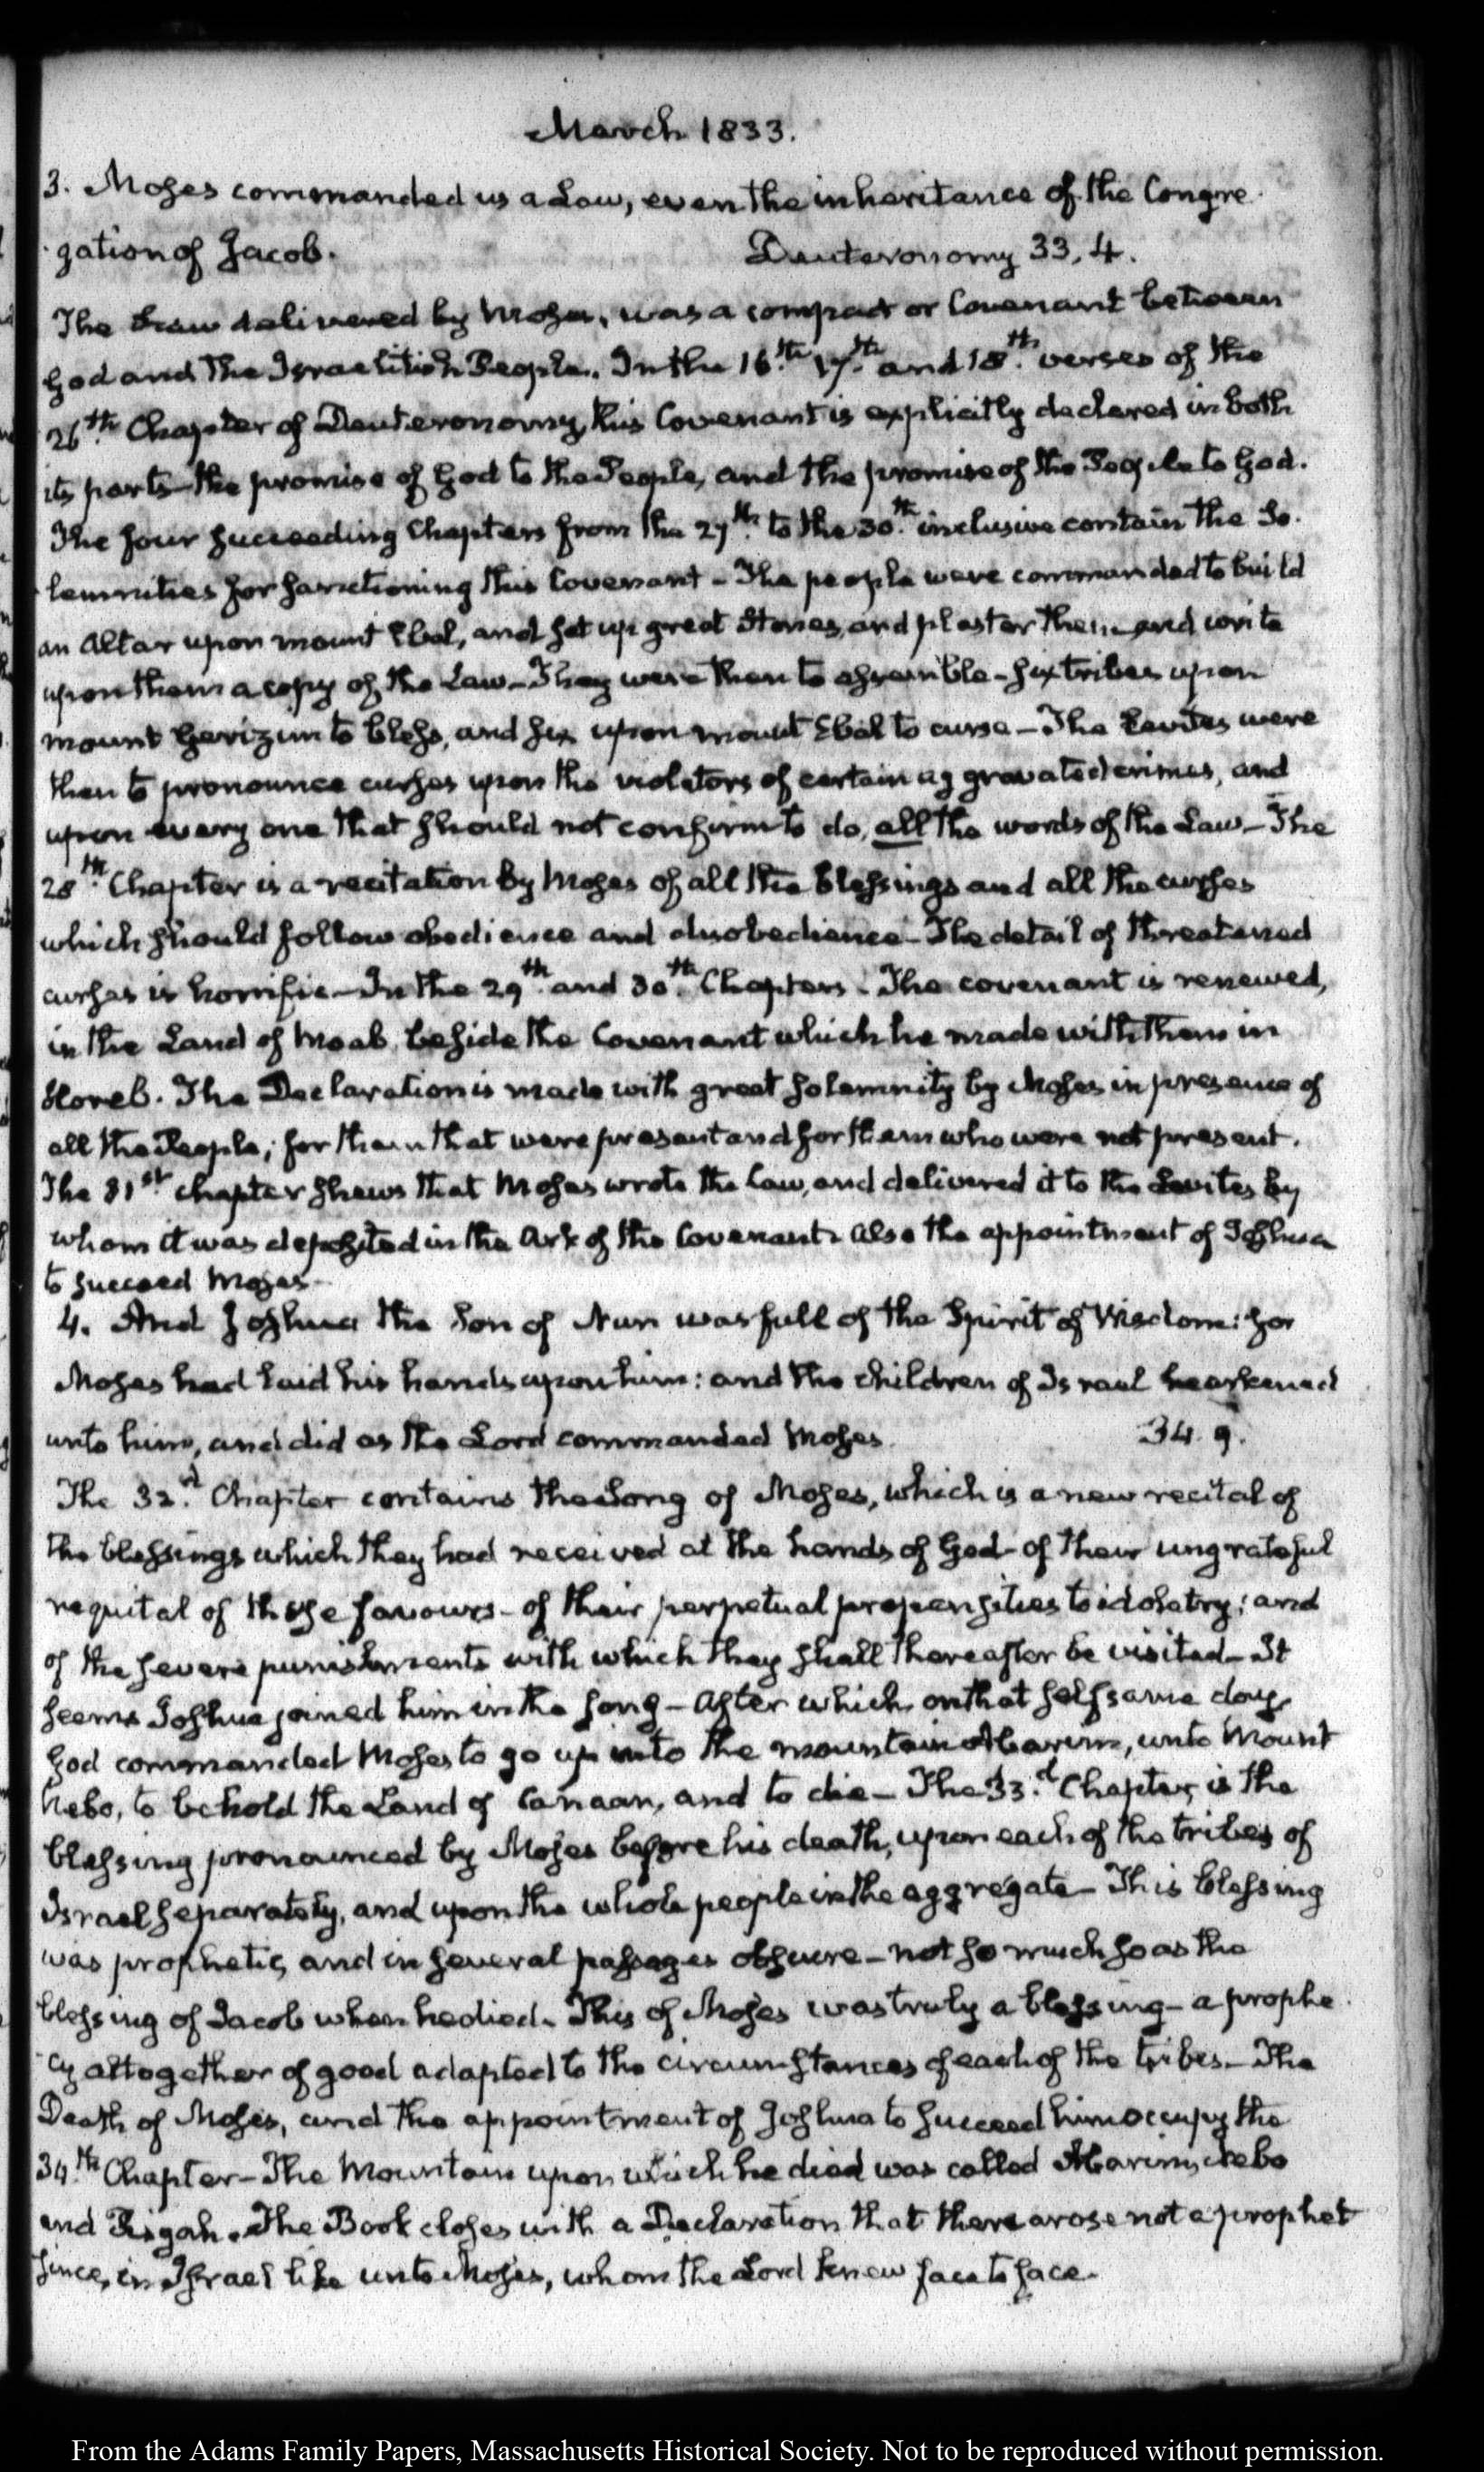 March 1833.
3. Moses commanded us a Law, even the inheritance of the Congre
gation of Jacob. Deuteronomy 33, 4.
The Law delivered by Moses, was a compact or Covenant between
God and the Israelitish People. In the 16.th 17.th and 18.th verses of the
26.th Chapter of Deuteronomy, this Covenant is explicitly declared in both
its parts—the promise of God to the People, and the promise of the People to God.
The four succeeding Chapters from the 27.th to the 30.th inclusive contain the So-
lemnities for sanctioning this Covenant – The people were commanded to build
an Altar upon mount Ebal, and set up great Stones, and plaster them and write
upon them a copy of the Law – They were then to assemble – six tribes upon
mount Gerizim to bless, and six upon mount Ebal to curse – The Levites were
then to pronounce curses upon the violators of certain aggravated crimes, and
upon every one that should not confirm to do, all the words of the Law – The
28.th Chapter is a recitation by Moses of all the blessings and all the curses
which should follow obedience and disobedience – The detail of threatened
curses is horrific – In the 29.th and 30.th Chapters. The covenant is renewed,
in the Land of Moab, beside the Covenant which he made with them in
Horeb. The Declaration is made with great solemnity by Moses in presence of
all the People; for them that were present and for them who were not present.
The 31st chapter shews that Moses wrote the Law, and delivered it to the Levites by
whom it was deposited in the Ark of the Covenant. Also the appointment of Joshua
to succeed Moses –
4. And Joshua the Son of Nun was full of the Spirit of Wisdom: for
Moses had laid his hands upon him: and the children of Israel hearkened
unto him, and did as the Lord commanded Moses. 34. 9.
The 32.d Chapter contains the Song of Moses, which is a new recital of
the blessings which they had received at the hands of God – of their ungrateful
requital of these favours – of their perpetual propensities to idolatry; and
of the severe punishments with which they shall thereafter be visited – It
seems Joshua joined him in the song – After which on that selfsame day
God commanded Moses to go up into the mountain Abarim, unto Mount
Nebo, to behold the Land of Canaan, and to die – The 33.d Chapter, is the
blessing pronounced by Moses before his death, upon each of the tribes of
Israel separately, and upon the whole people in the aggregate – This blessing
was prophetic, and in several passages obscure – not so much so as the
blessing of Jacob when he died. This of Moses was truly a blessing – a prophe
cy altogether of good adapted to the circumstances of each of the tribes – The
Death of Moses, and the appointment of Joshua to succeed him occupy the
34.th Chapter – The Mountain upon which he died was called Abarim, Nebo
and Pisgah. The Book closes with a Declaration that there arose not a prophet
since, in Israel like unto Moses, whom the Lord knew face to face.
From the Adams Family Papers, Massachusetts Historical Society. Not to be reproduced without permission.